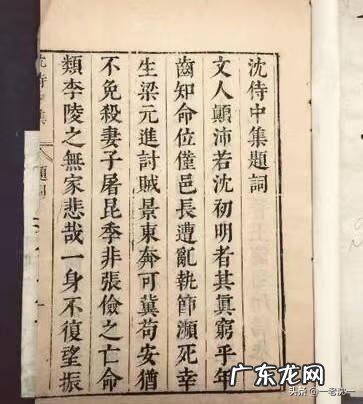 沈侍中集題詞
文人顛沛若沈初明者其真窮乎年
齒知命位僅邑長遭亂執節瀕死幸
生梁元進討賊景東奔可冀苟安猶
不免殺妻子屠昆季非張儉之亡命
類李陵之無家悲哉一身不復望振
沈侍中集
題詞
广东龙网
头条 @一老沈一